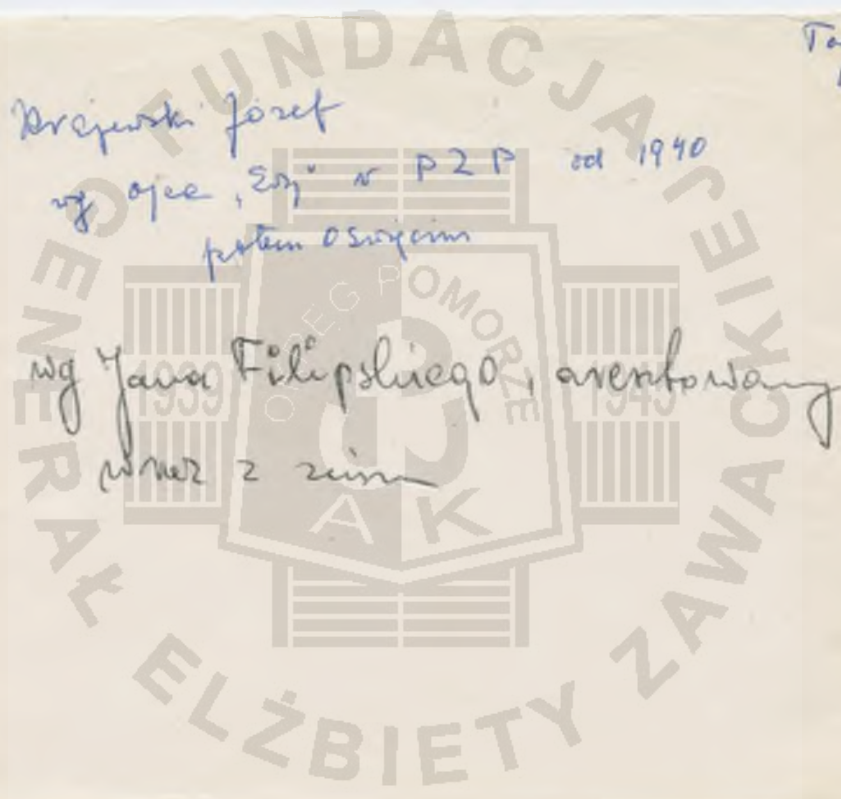 To
Krajewski Józef
wg ojca „Ery" w PZP od 1940
potem Oświęcim
wg Jana Filipskiego, aresztowany
wraz z nim
FUNDACJA
GENERAŁ ELŻBIETY ZAWACKIEJ
OKRĘG POMORZE
1939
1945
AK